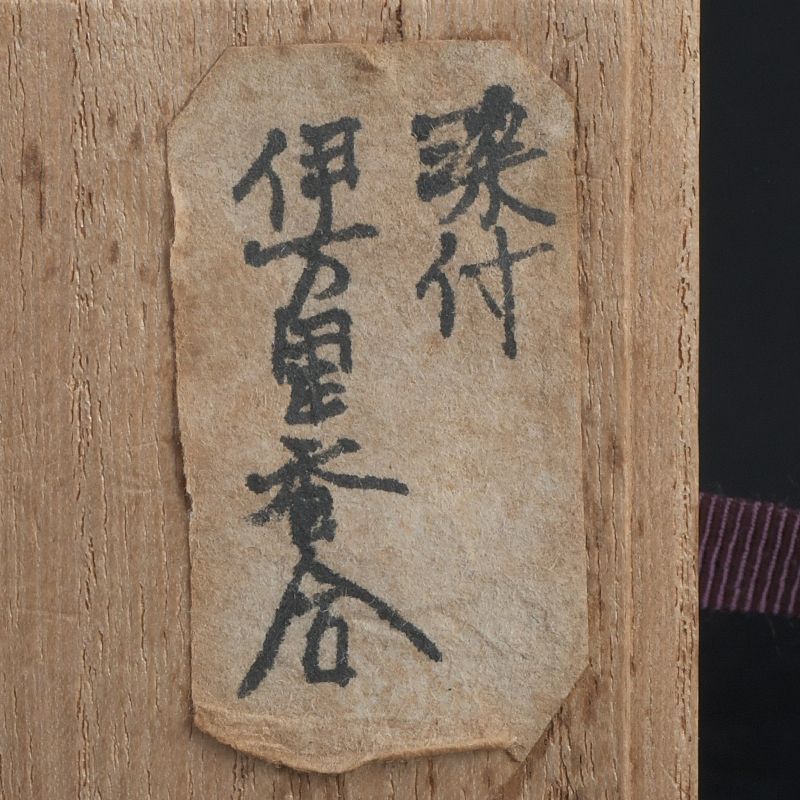 染付
伊万里香合